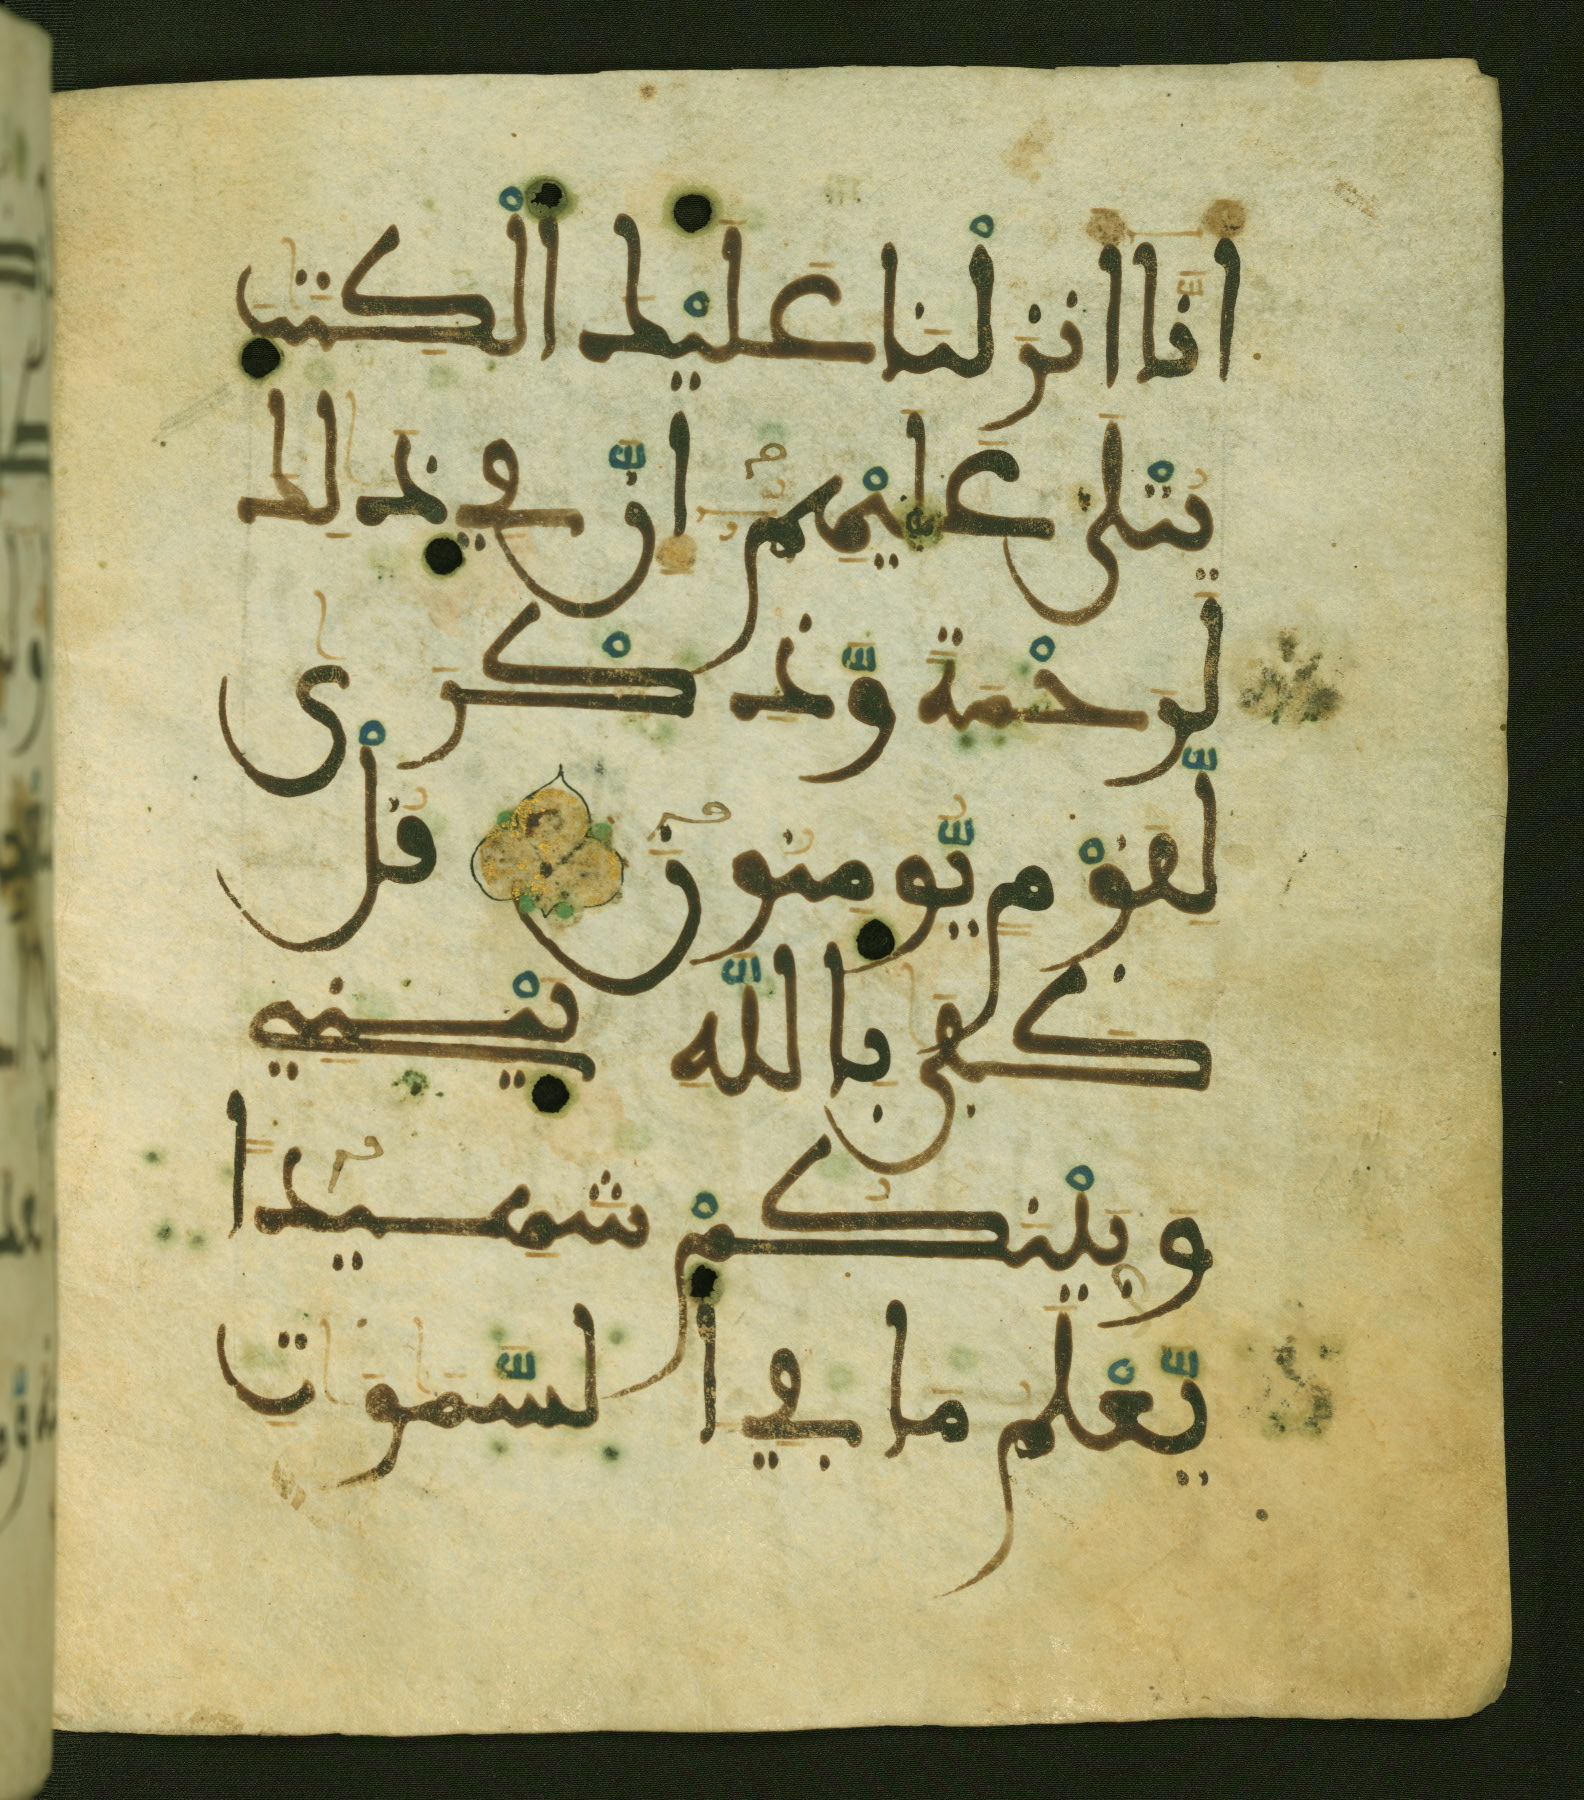 اَنَّا أَنزَلْنَا عَلَيْكَ اَ۬لْكِتَٰبَ
يُتْل۪ى عَلَيْهِمُۥٓ إِنَّ فِے ذَٰلِكَ
لَرَحْمَةٗ وَّذِكْر۪ىٰ
لِّقَوْمٖ يُّومِنُونَ قُلْ
كَف۪ىٰ بِاللَّهِ بَيْنِے
وَبَيْنَكُمْ شَهِيداٗ
يَّعْلَمُ مَا فِے اِ۬لسَّمَٰوَٰتِ